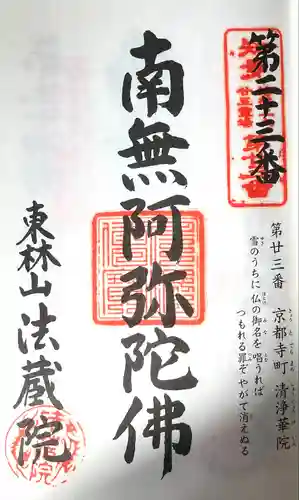 第二十三番
第廿三番 京都寺町 清浄華院
雪のうちに 仏の御名を 唱うれば
つもれる罪ぞ やがて消えぬる
南無阿弥陀佛
東林山 法蔵院